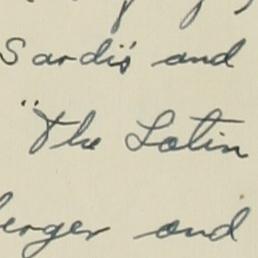 Sardi's and
"The Latin
berger and